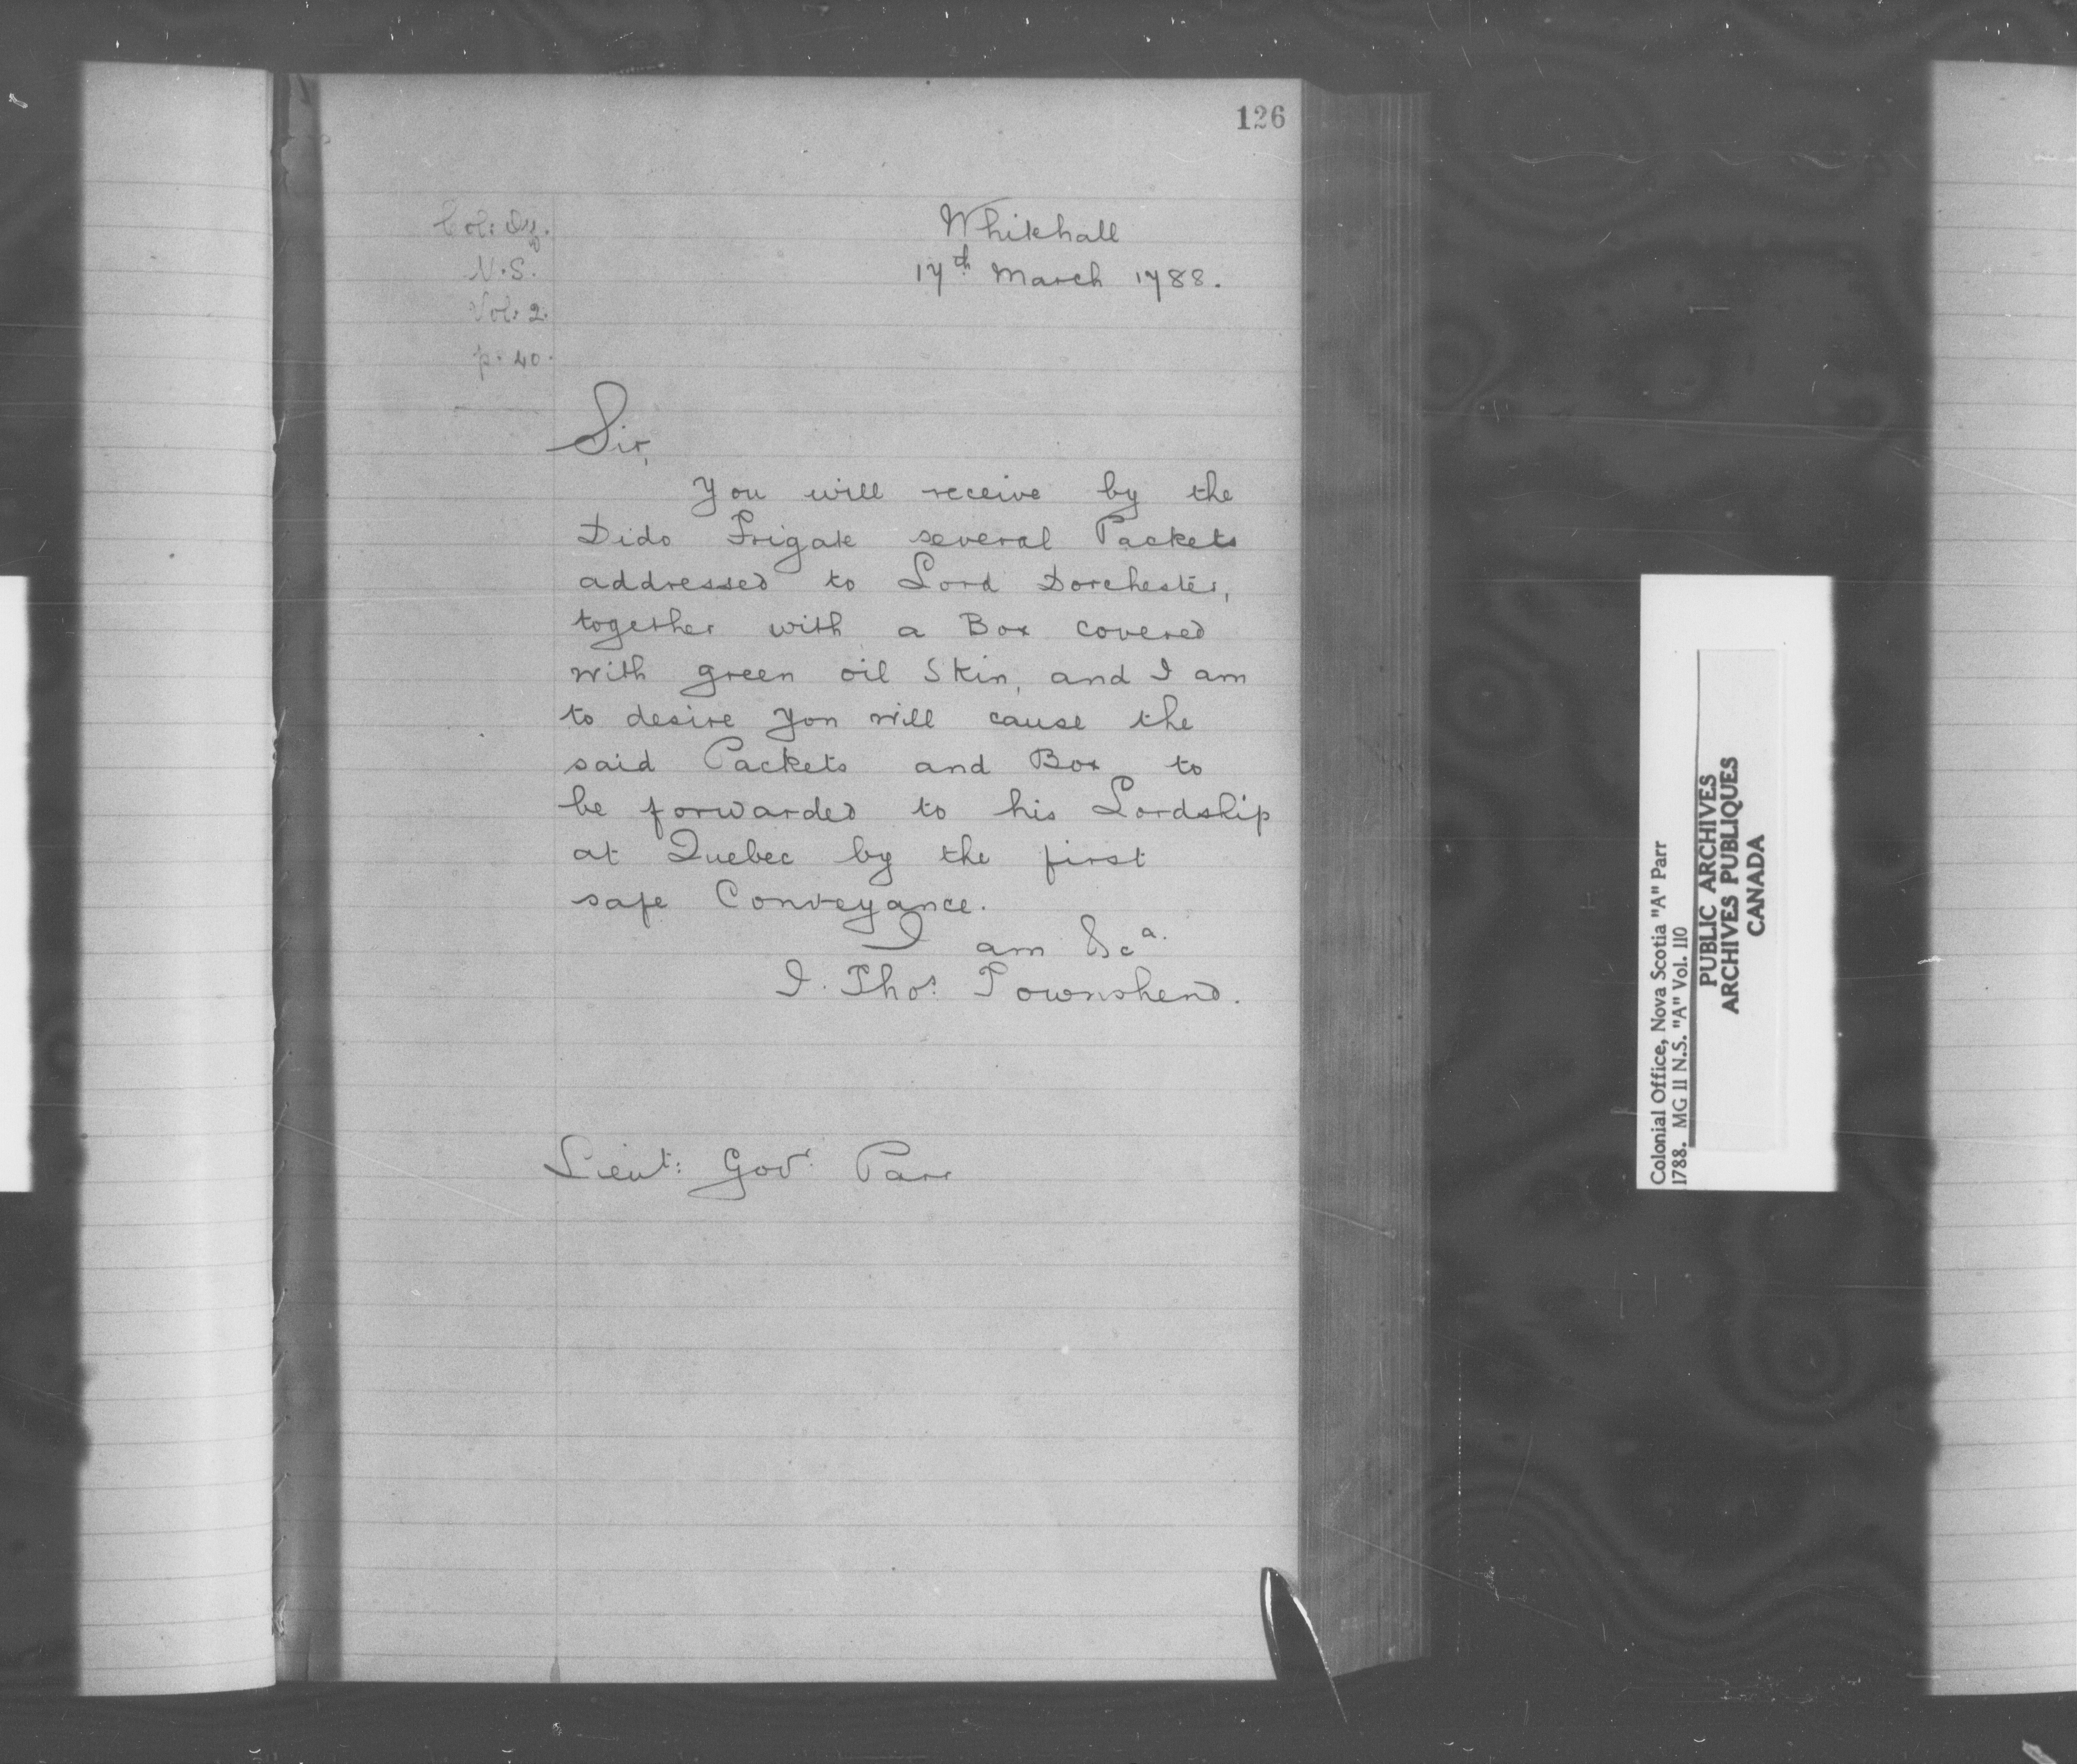 126
Col: Off.
N.S.
Vol: 2.
p. 40.
Whitehall
17th March 1788.
Sir,
You will receive by the
Dido Frigate several Packets
addressed to Lord Dorchester,
together with a Box covered
with green oil Skin, and I am
to desire you will cause the
said Packets and Box to
be forwarded to his Lordship
at Quebec by the first
safe Conveyance.
I am &ca.
I. Thos. Townshend.
Lieut: Govr. Parr
Colonial Office, Nova Scotia "A" Parr
1788. MG 11 N.S. "A" Vol. 110
PUBLIC ARCHIVES
ARCHIVES PUBLIQUES
CANADA